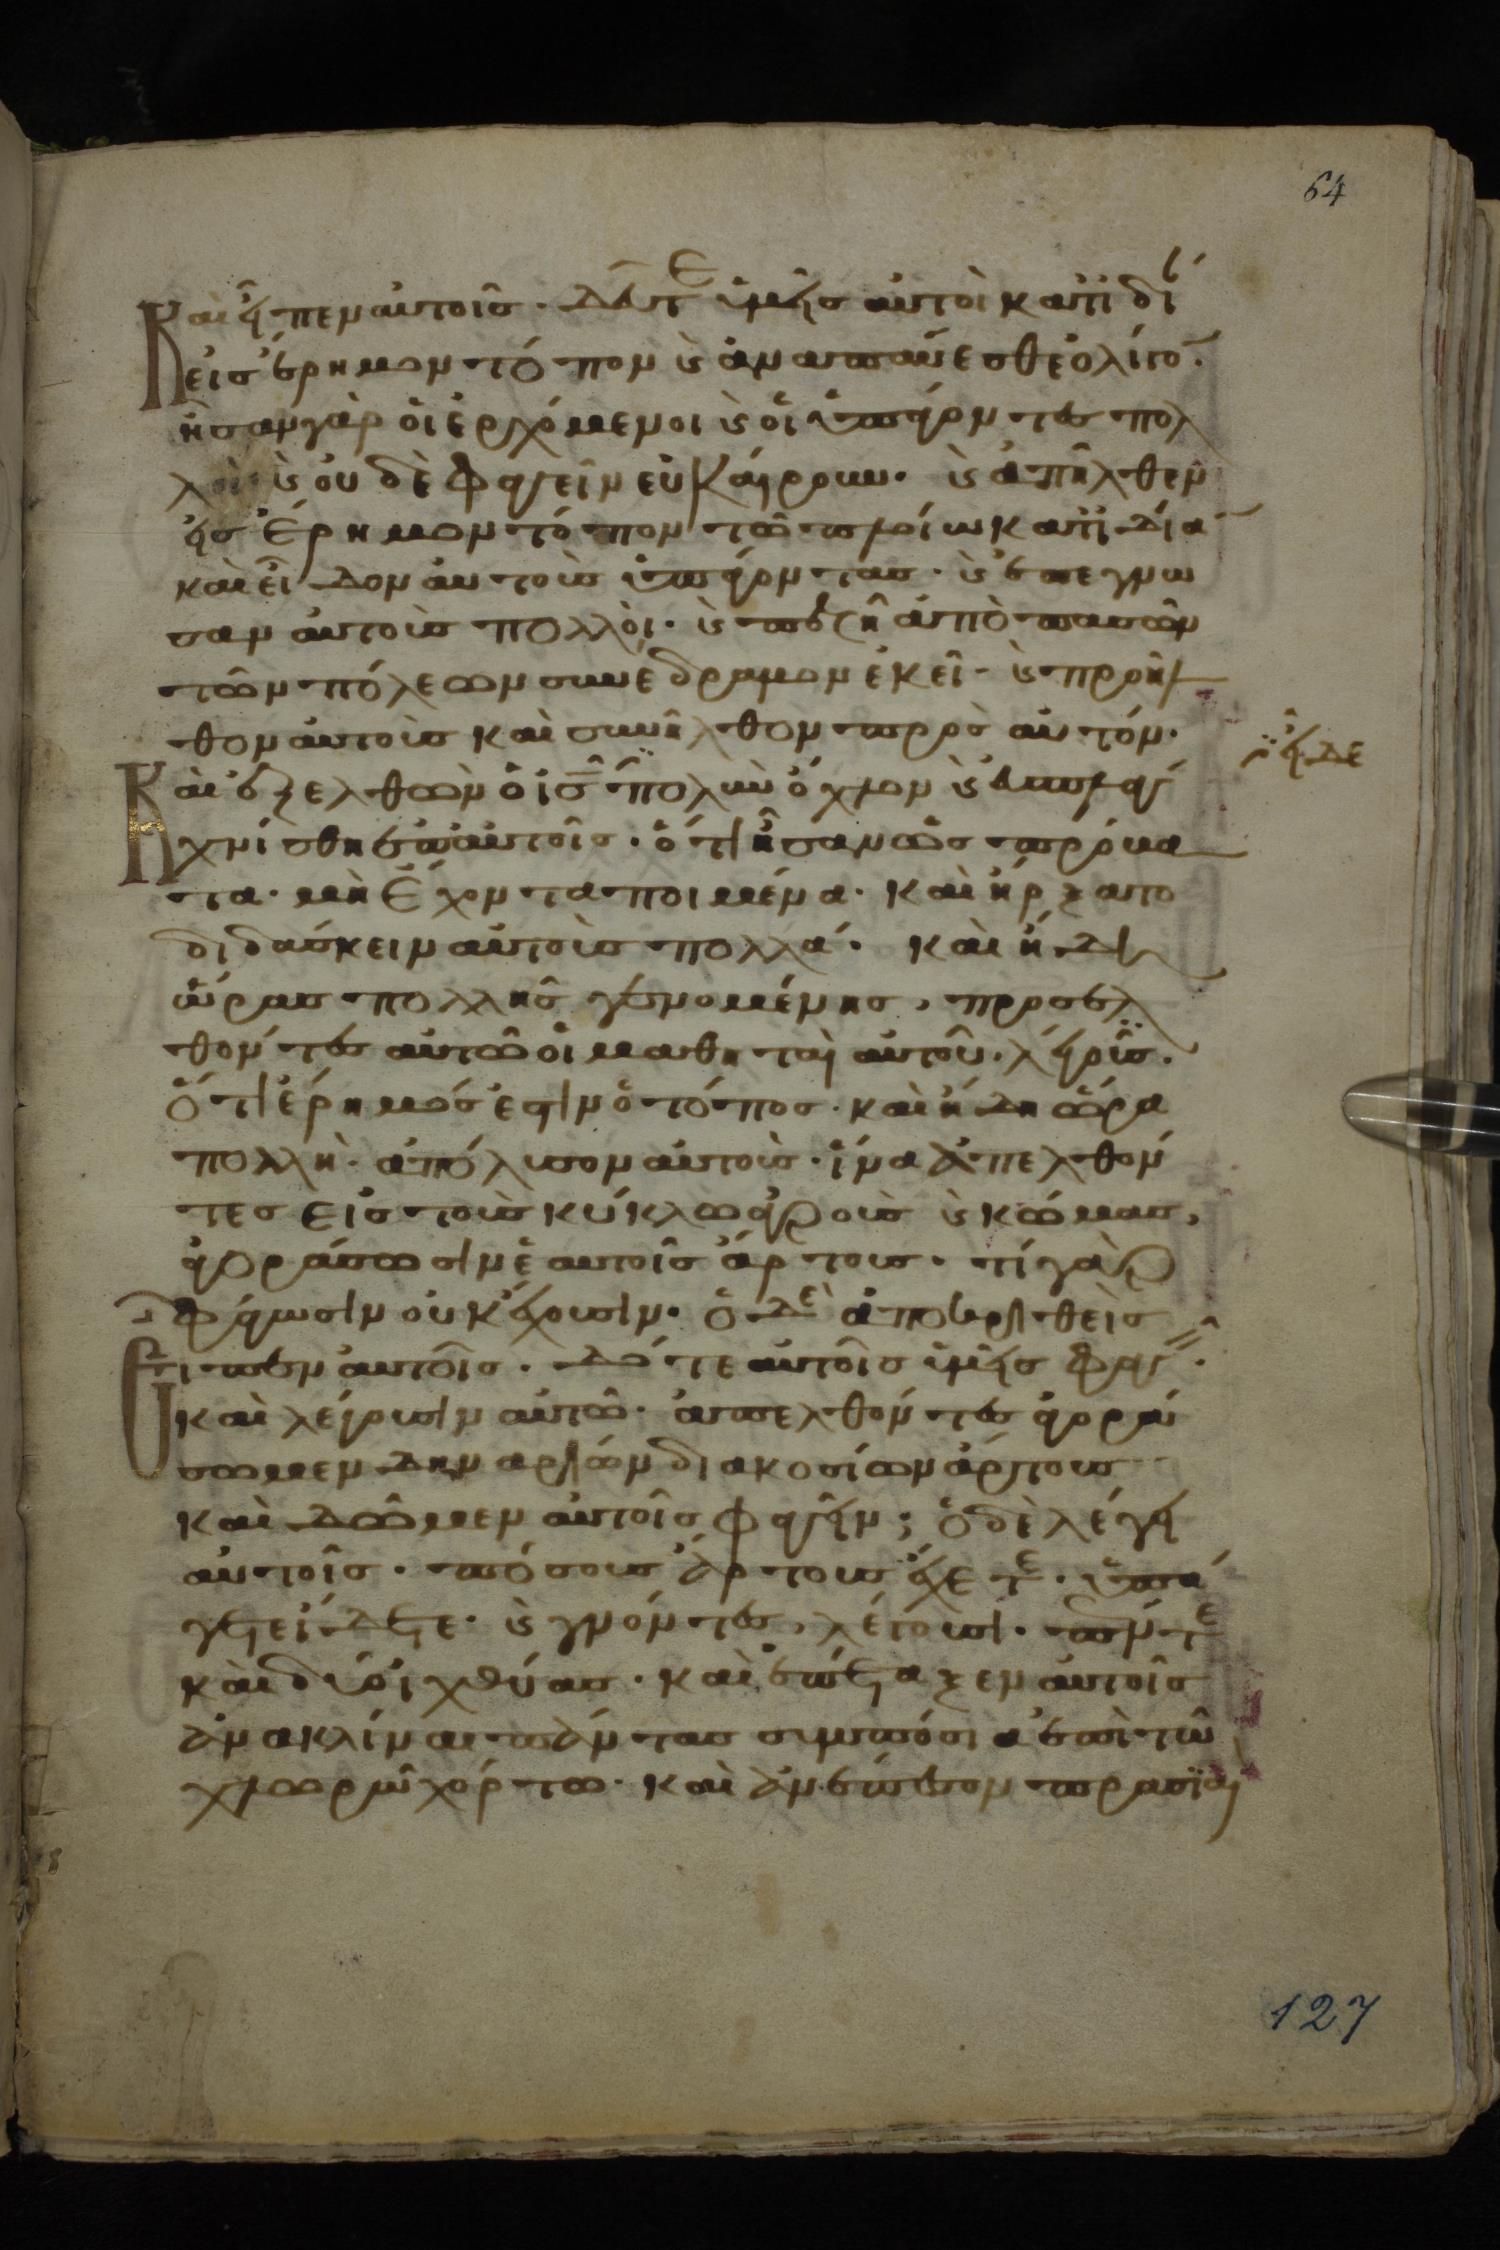 64
Καὶ εἶπεν αὐτοῖς· δεῦτε ὑμεῖς αὐτοὶ κατ ϊδί
εἰς ἔρημον τόπον ϗ ἀναπαύεσθε ὀλίγο
ἦσαν γὰρ οἱ ἐρχόμενοι ϗ οἱ ὑπάγοντες πολ
λοὶ· ϗ οὐδὲ φαγεῖν εὐκαίρουν· ϗ ἀπῆλθεν
εἰς ἔρημον τόπον τῶ πλοίω κατ ϊδία
καὶ εἶδον αὐτοὺς ὑπάγοντας· ϗ ἐπέγνω
σαν αὐτοὺς πολλοὶ· ϗ πεζῆ ἀπὸ πασῶν
τῶν πόλεων συνέδραμον ἐκεῖ· ϗ προῆλ
θον αὐτοὺς καὶ συνῆλθον πρὸς αὐτόν·
εἶδε
Καὶ ἐξελθὼν ὁ ις πολὺν ὄχλον ϗ ἐσπλαγ
χνίσθη ἐπ αὐτοῖς· ὅτι ἦσαν ὡς πρόβα
τα· μὴ ἔχοντα ποιμένα· καὶ ἤρξατο
διδάσκειν αὐτοὺς πολλά· καὶ ἤδη
ὥρας πολλῆς γενομένης, προσελ
θόντες αὐτῶ οἱ μαθηταὶ αὐτοῦ· λέγουσ·
ὅτι ἔρημός ἐστιν ὁ τόπος· καὶ ἤδη ὥρα
πολλὴ· ἀπόλυσον αὐτοὺς· ἵνα ἀπελθόν
τες εἰς τοὺς κύκλω ἀγροὺς ϗ κώμας,
ἀγοράσωσιν ἑαυτοῖς ἄρτους· τί γὰρ
φάγωσιν οὐκ ἔχουσιν· ὁ δὲ ἀποκριθεὶς
Εἶπεν αὐτοῖς· δότε αὐτοῖς ὑμεῖς φαγ·
καὶ λέγουσιν αὐτῶ· ἀπελθόντες ἀγορά
σωμεν δηναρίων διακοσίων ἄρτους
καὶ δῶμεν αὐτοῖς φαγεῖν; ὁ δὲ λέγει
αὐτοῖς· πόσους ἄρτους ἔχετε· ὑπά
γετε ἴδετε· ϗ γνόντες, λέγουσι· πέντε
καὶ δύο ἰχθύας· καὶ ἐπέταξεν αὐτοῖς
ἀνακλῖναι πάντας συμπόσια ἐπὶ τῶ
χλωρῶ χόρτω· καὶ ἀνέπεσον πρασϊαὶ
127